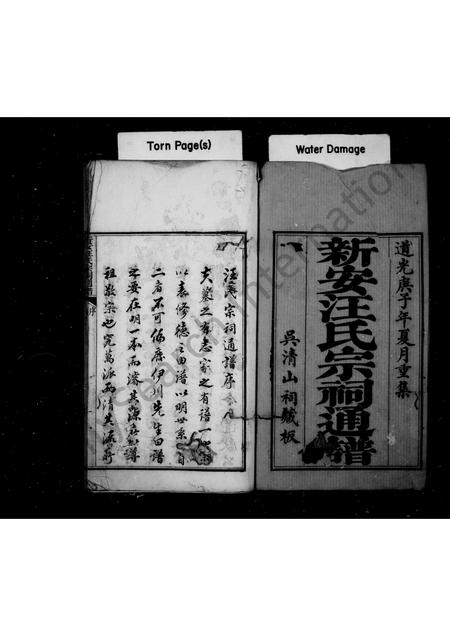 Torn Page(s)
Water Damage
道光庚子年夏月重集
新安汪氏宗祠通譜
吳清山祠藏板
汪氏宗祠通譜序
夫墓之有志家之有譜一
以表修德由譜以明世系
二者不可偏廢伊川先生曰譜
之要在明一本而濬其源
祖敬宗也究萬派而清其流
序